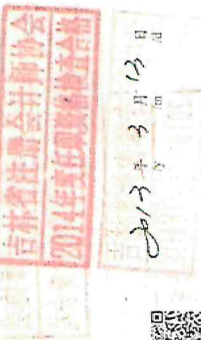 吉林省注册会计师协会
2014年度任职资格检查合格
2013 年 3 月 13 日
/y /m /d